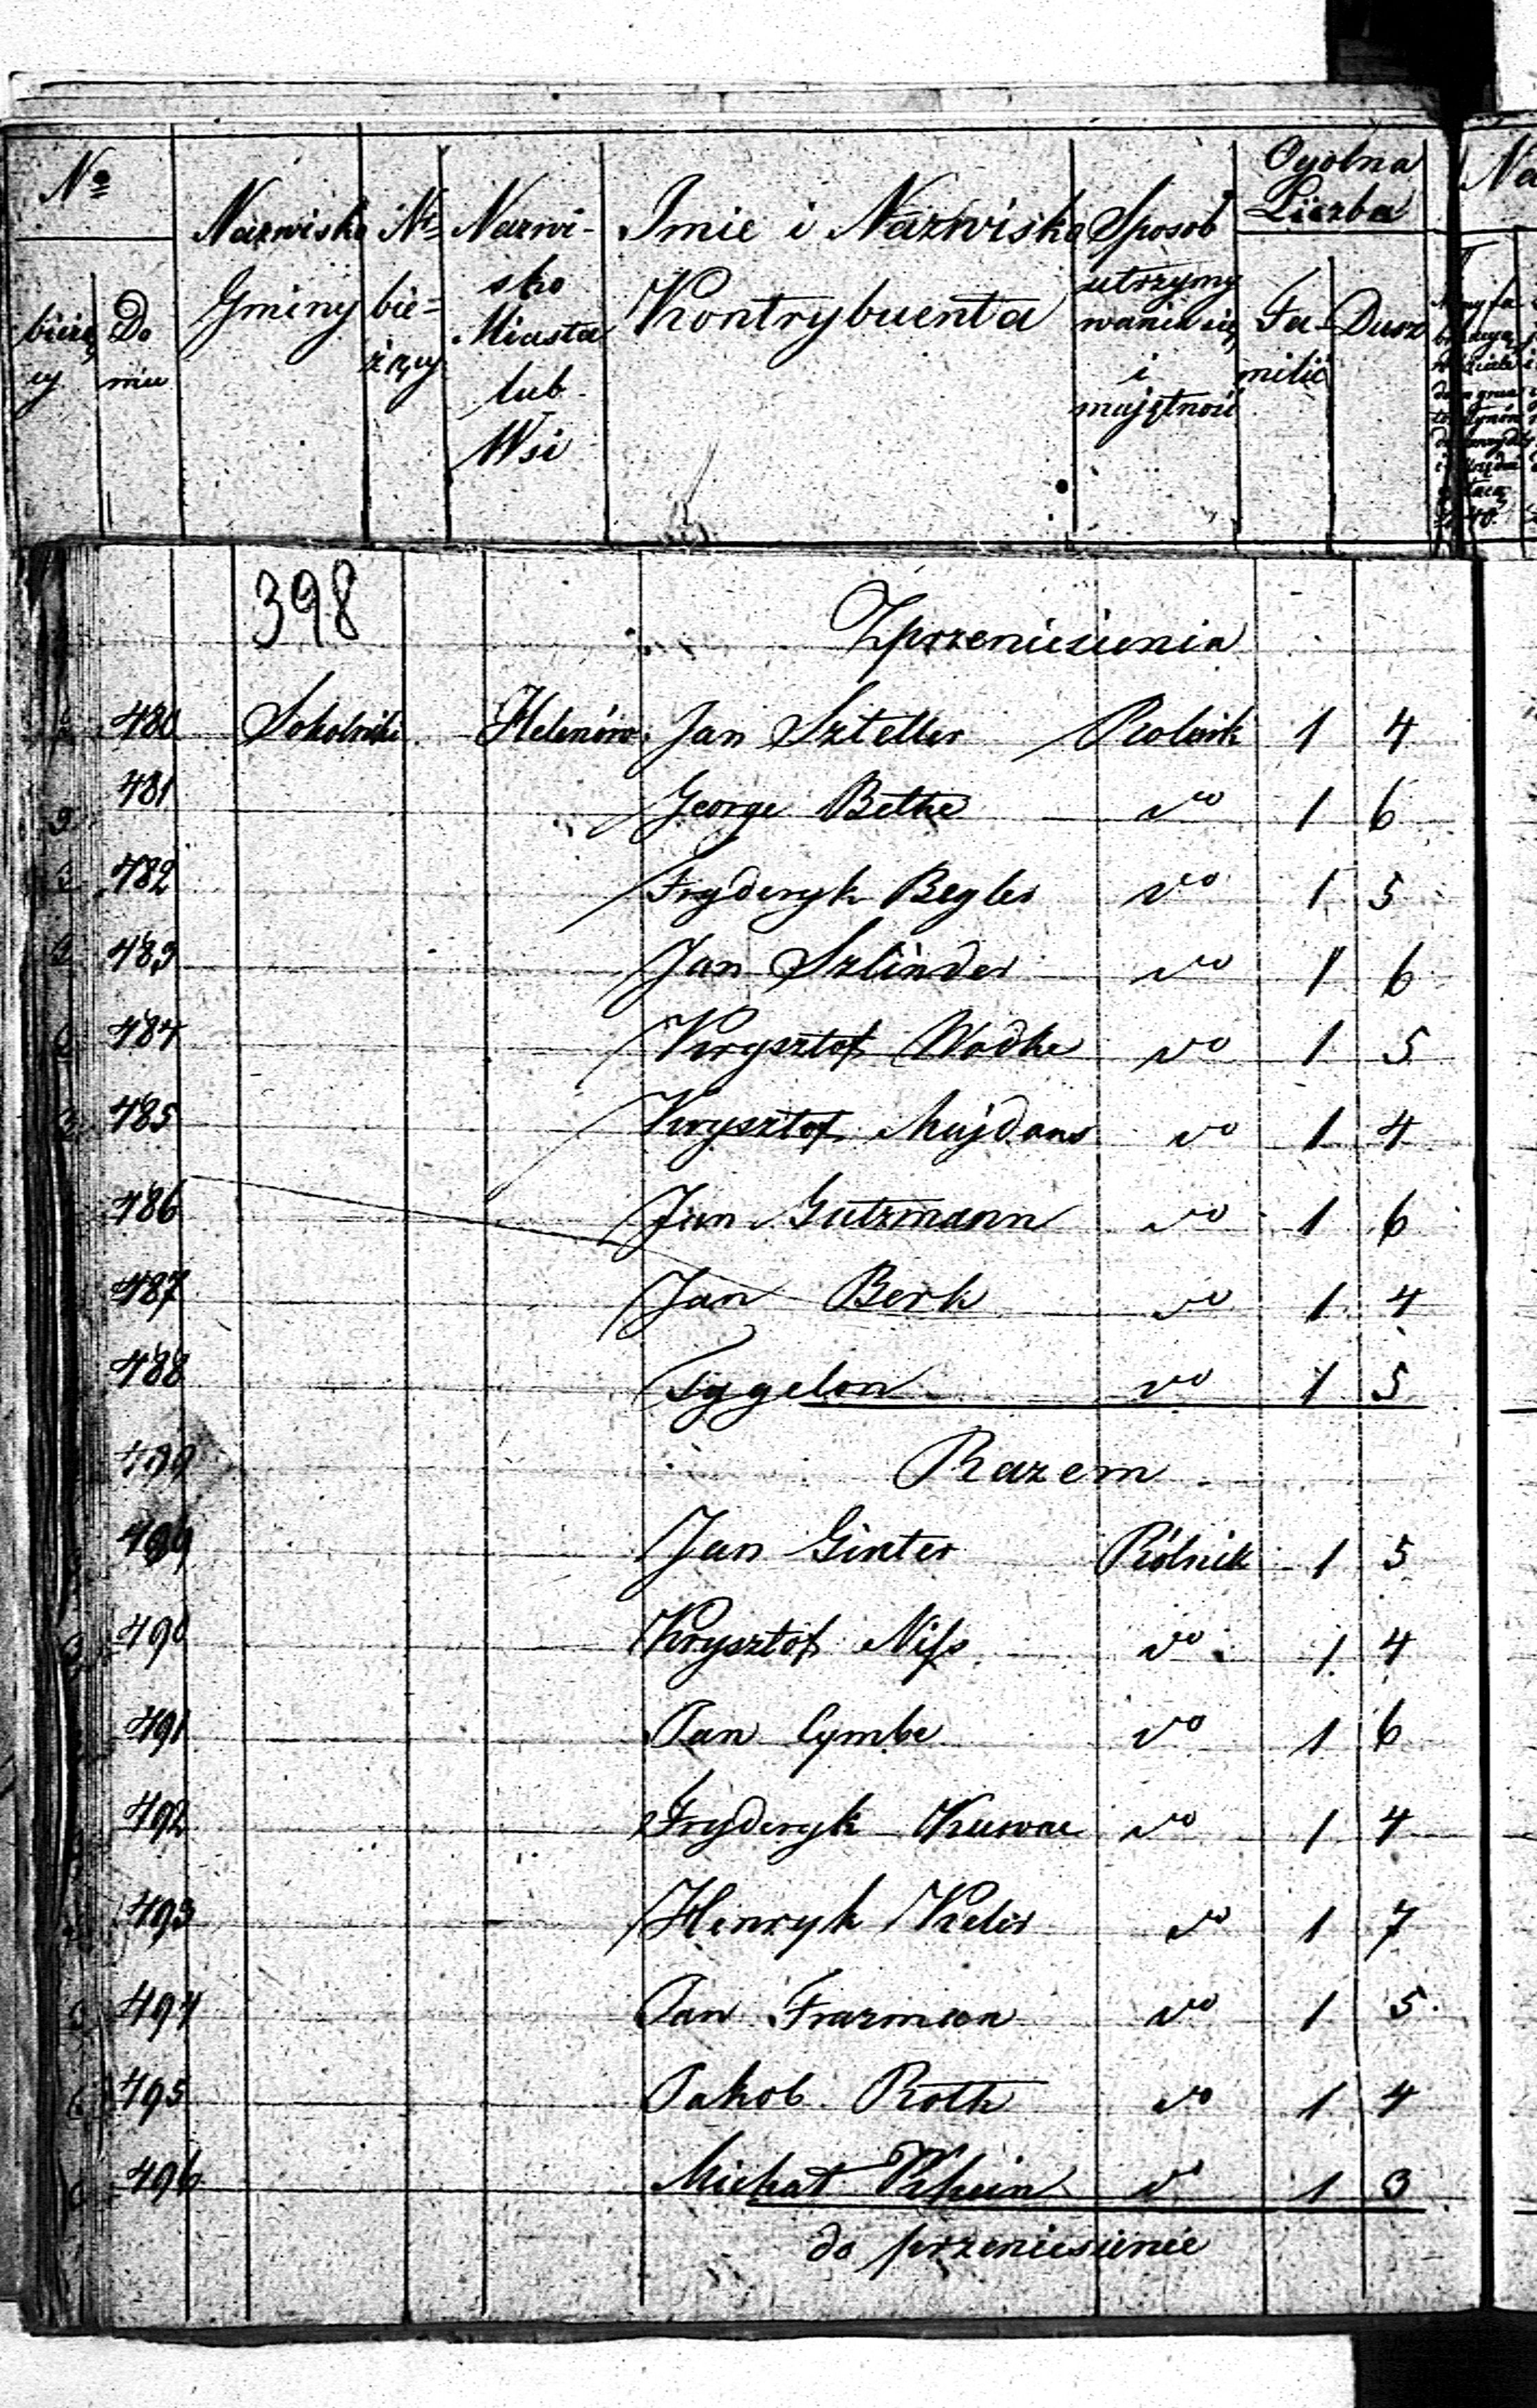 Nº
bieżą
cy
Do
mu
Nazwisko
Gminy
Nº
bie=
żący
Nazwi-
sko
Miasta
lub
Wsi
Imie i Nazwisko
Kontrybuenta
Sposob
utrzymy
wania się
i
majętność
Ogolna
Liczba
Fa-
milii
Dusz
398
Zprzeniesienia
480 Sokolniki Helenów Jan Szteller Rolnik 1 4
481 George Bethe do 1 6
482 Fryderyk Begler do 1 5
483 Jan Szlinder do 1 6
484 Krysztof Wodke do 1 5
485 Krysztof Majdans do 1 4
486 Jan Gutzmann do 1 6
487 Jan Berk do 1 4
488 Tygelon do 1 5
Razem
489 Jan Ginter Rólnik 1 5
490 Krysztof Niss do 1 4
491 Jan Cymbe do 1 6
492 Fryderyk do 1 4
493 Henryk Kieler do 1 7
494 Jan Frazman do 1 5
495 Jakob Roth do 1 4
496 Michał do 1 3
do przeniesienie